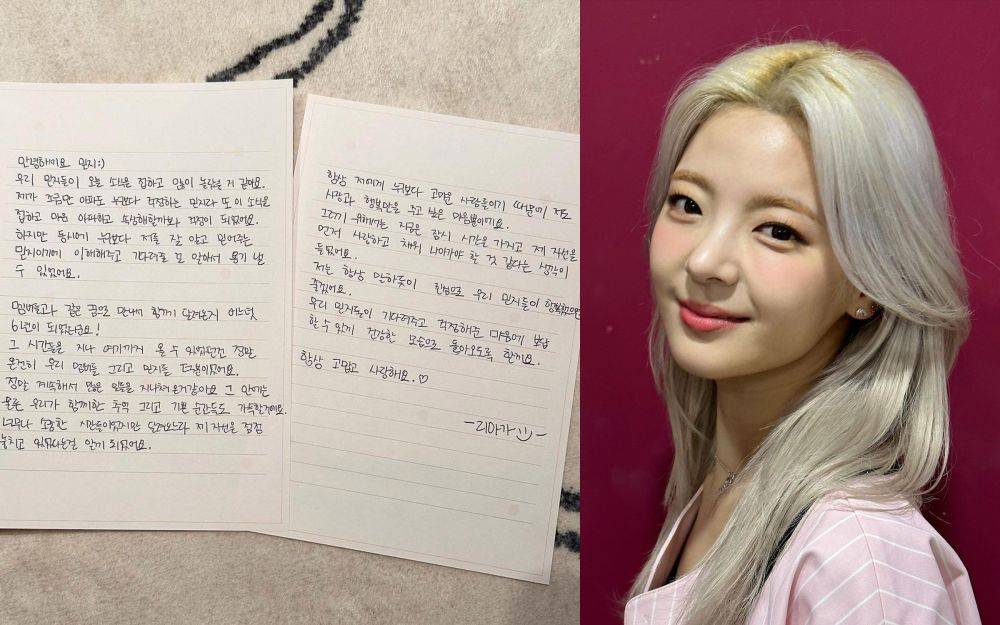 안녕하세요 믿지:)
우리 믿지들이 오늘 소식을 접하고 많이 놀랐을 거 같아요.
제가 조금만 아파도 누구보다 걱정하는 믿지라 또 이 소식을
접하고 마음 아파하고 속상해할까봐 걱정이 되었어요.
하지만 동시에 누구보다 저를 잘 알고 믿어주는
믿지이기에 이해해주고 기다려줄 걸 알아서 용기 낼
수 있었어요.
멤버들과 같은 꿈으로 만나서 함께 달려온지 어느덧
6년이 되었더라구요!
그 시간들을 지나 여기까지 올 수 있었던건 정말
온전히 우리 멤버들 그리고 믿지들 덕분이었어요.
정말 계속해서 많은 일들을 지나쳐 온거같아요 그 안에는
물론 우리가 함께한 추억 그리고 기쁜 순간들도 가득할거에요.
너무나 소중한 시간들이었지만 달려오느라 제 자신을 점점
놓치고 있었다는걸 알게 되었어요.
항상 저에게 누구보다 고마운 사람들이기 때문에 저도
사랑과 행복만을 주고 싶은 마음뿐이에요.
그러기 위해서는 지금은 잠시 시간을 가지고 제 자신을
먼저 사랑하고 채워 나아가야 할 것 같다는 생각이
들었어요.
저는 항상 말하듯이 진심으로 우리 믿지들이 행복했으면
좋겠어요.
우리 믿지들이 기다려주고 걱정해준 마음에 보답
할 수 있게 건강한 모습으로 돌아오도록 할게요.
항상 고맙고 사랑해요.♡
-리아가 :)-